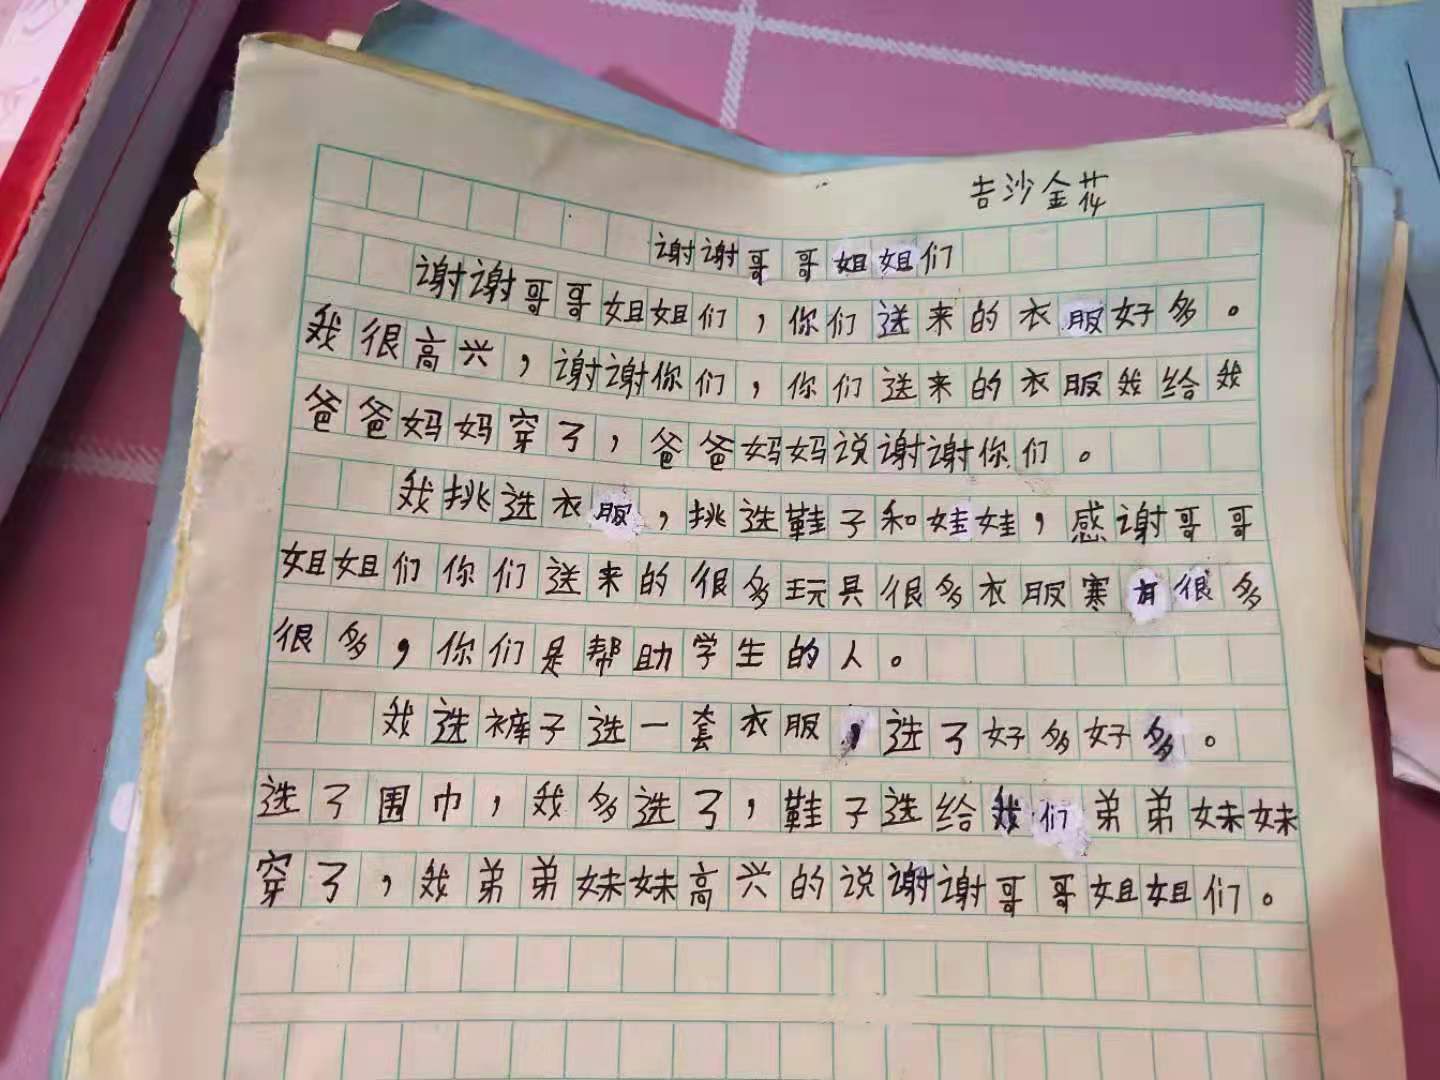 吉沙金花
谢谢哥哥姐姐们
谢谢哥哥姐姐们，你们送来的衣服好多。
我很高兴，谢谢你们，你们送来的衣服我给我
爸爸妈妈穿了，爸爸妈妈说谢谢你们。
我挑选衣服，挑选鞋子和娃娃，感谢哥哥
姐姐们你们送来的很多玩具很多衣服寒有很多
很多，你们是帮助学生的人。
我选裤子选一套衣服，选了好多好多。
选了围巾，我多选了，鞋子选给我们弟弟妹妹
穿了，我弟弟妹妹高兴的说谢谢哥哥姐姐们。